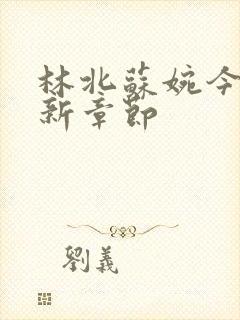 林北蘇婉今
新章節
劉義